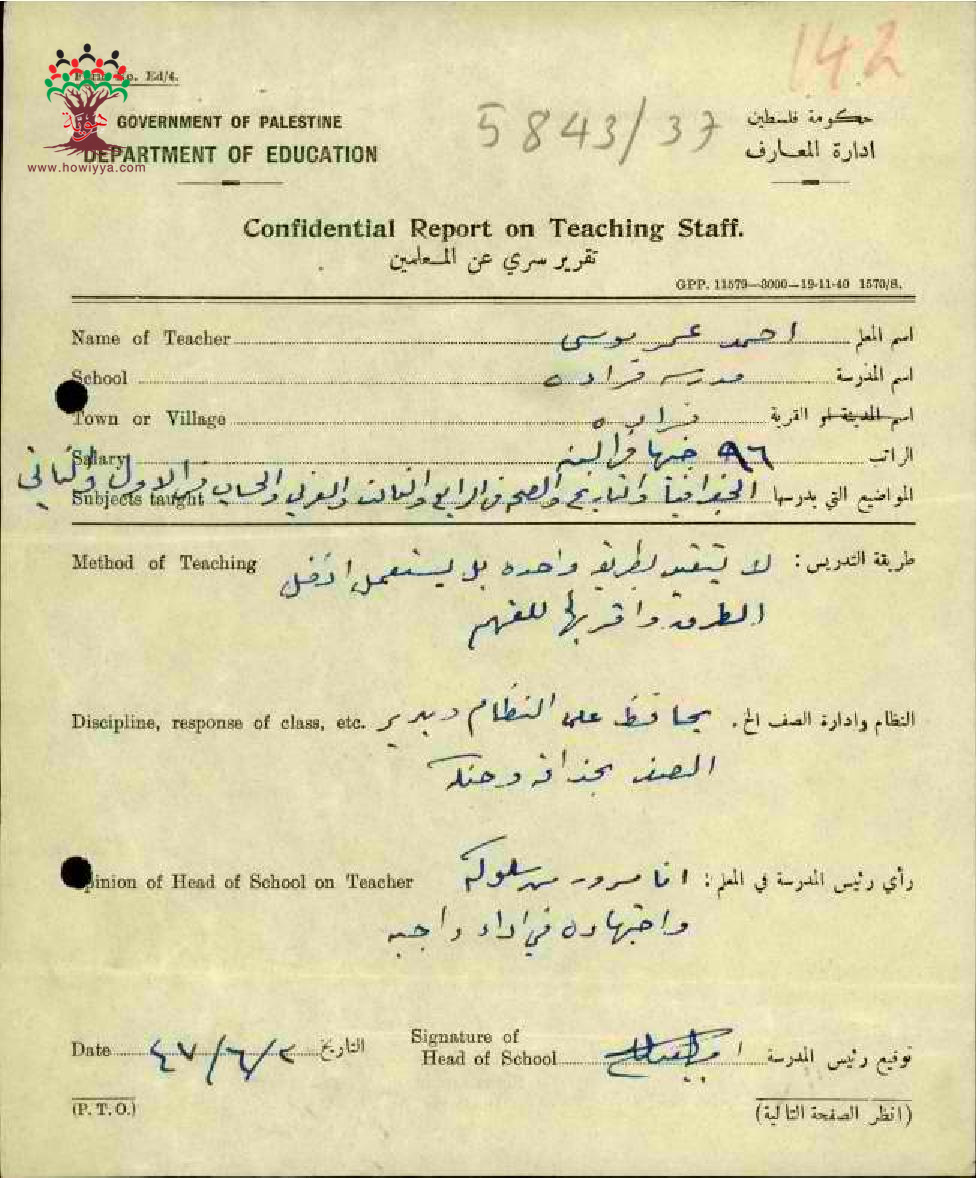 142
Form No. Ed/4.
هوية
www.howiyya.com
GOVERNMENT OF PALESTINE
DEPARTMENT OF EDUCATION
5843/37
حكومة فلسطين
ادارة المعارف
Confidential Report on Teaching Staff.
تقرير سري عن المعلمين
GPP. 11579—3000—19-11-40 1570/S.
Name of Teacher احمد عمر موسى اسم المعلم
School مدرسة فراده اسم المدرسة
Town or Village فراده اسم المدينة او القرية
Salary ٩٦ جنيها في السنه الراتب
Subjects taught الجغرافيا والتاريخ والصحه في الرابع والثالث والعربي والحساب في الاول والثاني المواضيع التي يدرسها
Method of Teaching لا يتقيد بطريقه واحده بل يستعمل افضل طريقة التدريس:
الطرق واقربها للفهم
Discipline, response of class, etc. يحافظ على النظام ويدير النظام وادارة الصف الخ.
الصف بحذاقه وحنكه
Opinion of Head of School on Teacher انا مسرور من سلوكه رأي رئيس المدرسة في المعلم:
واجتهاده في اداء واجبه
Date ٤٧/٦/٢ التاريخ
Signature of
Head of School توقيع رئيس المدرسة
(P. T. O.) (انظر الصفحة التالية)